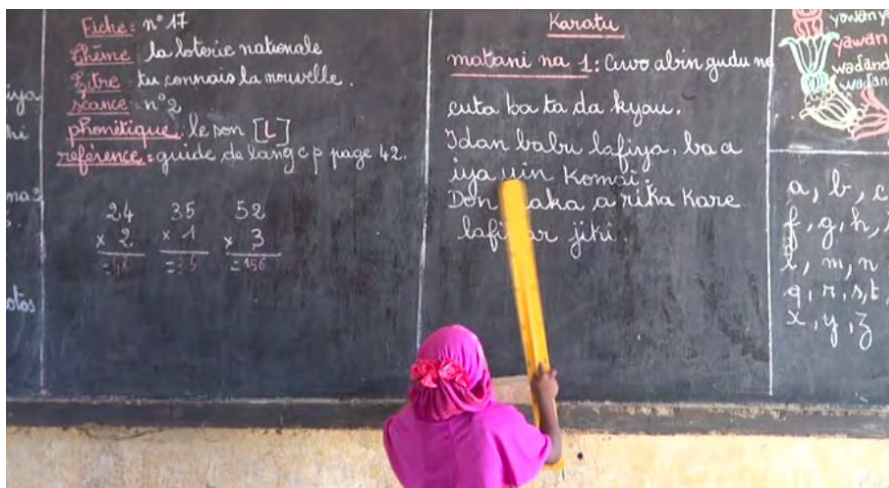 iya
hi
na?
otos
Fiche: n° 17
Thème: la loterie nationale
Titre: tu connais la nouvelle.
séance: n° 2
phonitique: le son [L]
référence: guide de lang c p page 42.
24 35 52
× 2 × 1 × 3
= 48 = 35 = 156
Karatu
matani na 1: Ciwo abin gudu ne
cuta ba ta da kyau.
Idan babu lafiya, ba a
iya yin komai.
Don a rika kare
jiki.
yawan
wadan
a, b, c
f, g, h,
l, m, n
q, r, s, t
x, y, z